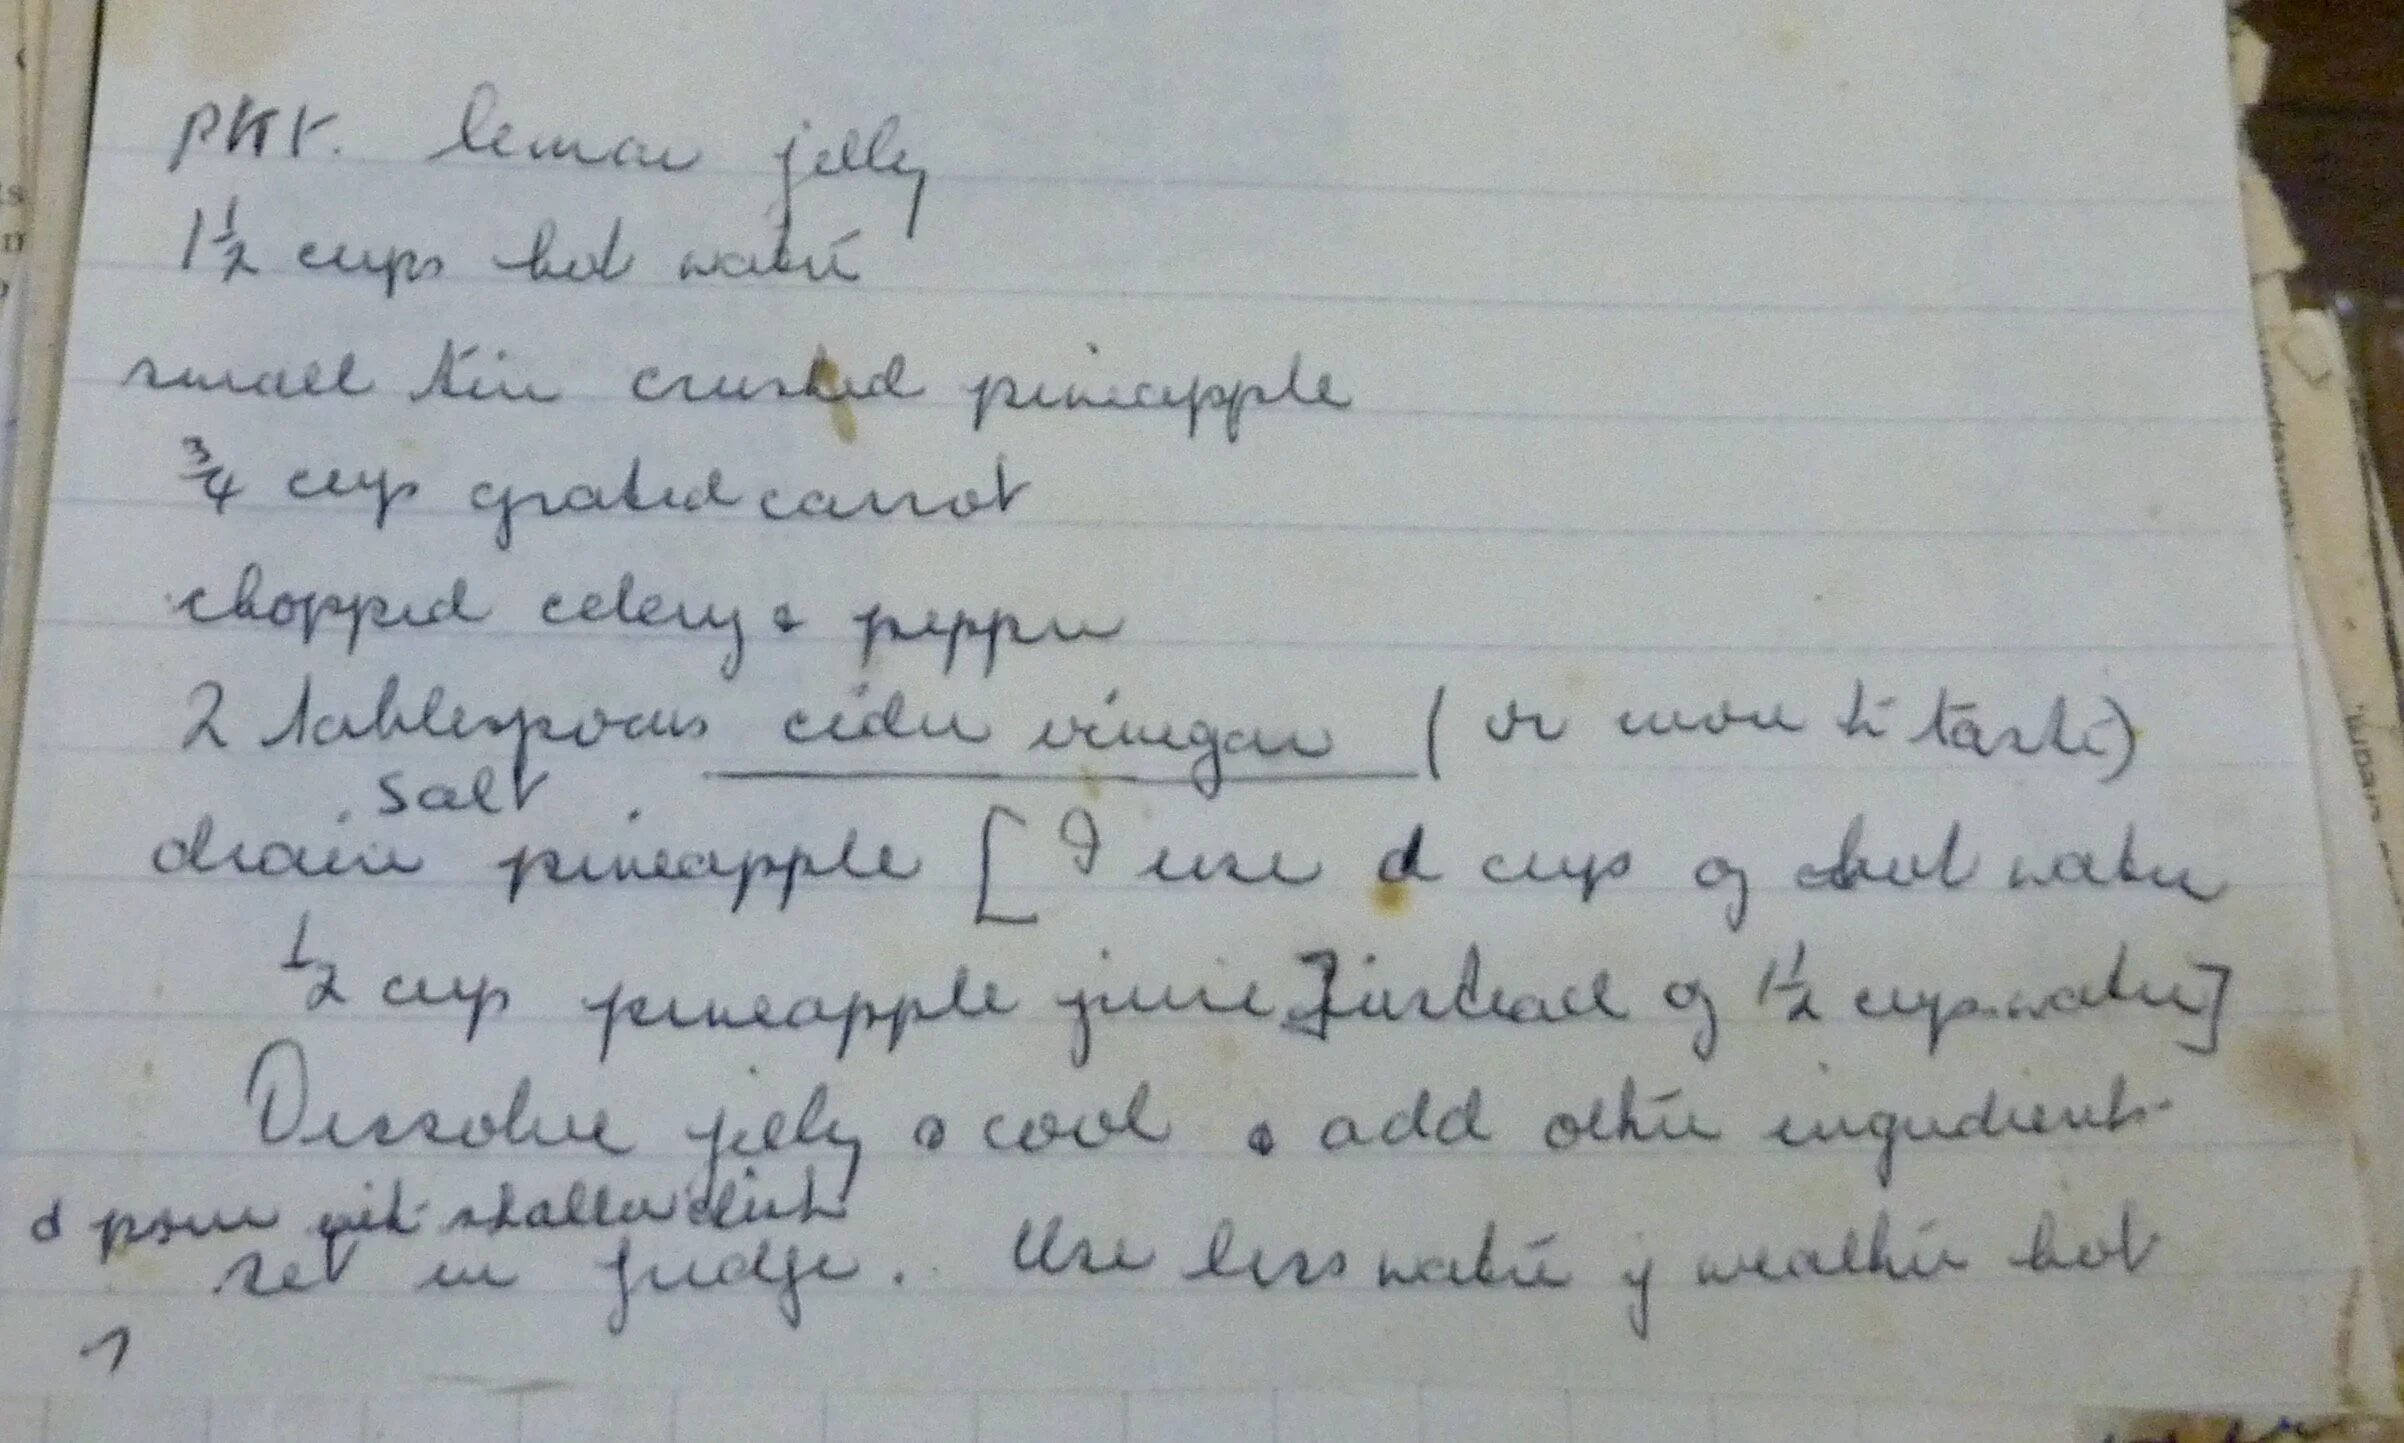 PKT. lemon jelly
1½ cups hot water
small tin crushed pineapple
¾ cup grated carrot
chopped celery & pepper
2 tablespoons cider vinegar (or more to taste)
salt
drain pineapple [I use 1 cup of hot water
½ cup pineapple juice] instead of 1½ cups water]
Dissolve jelly & cool & add other ingredients
& pour shallow dish
set in fridge. Use less water if weather hot